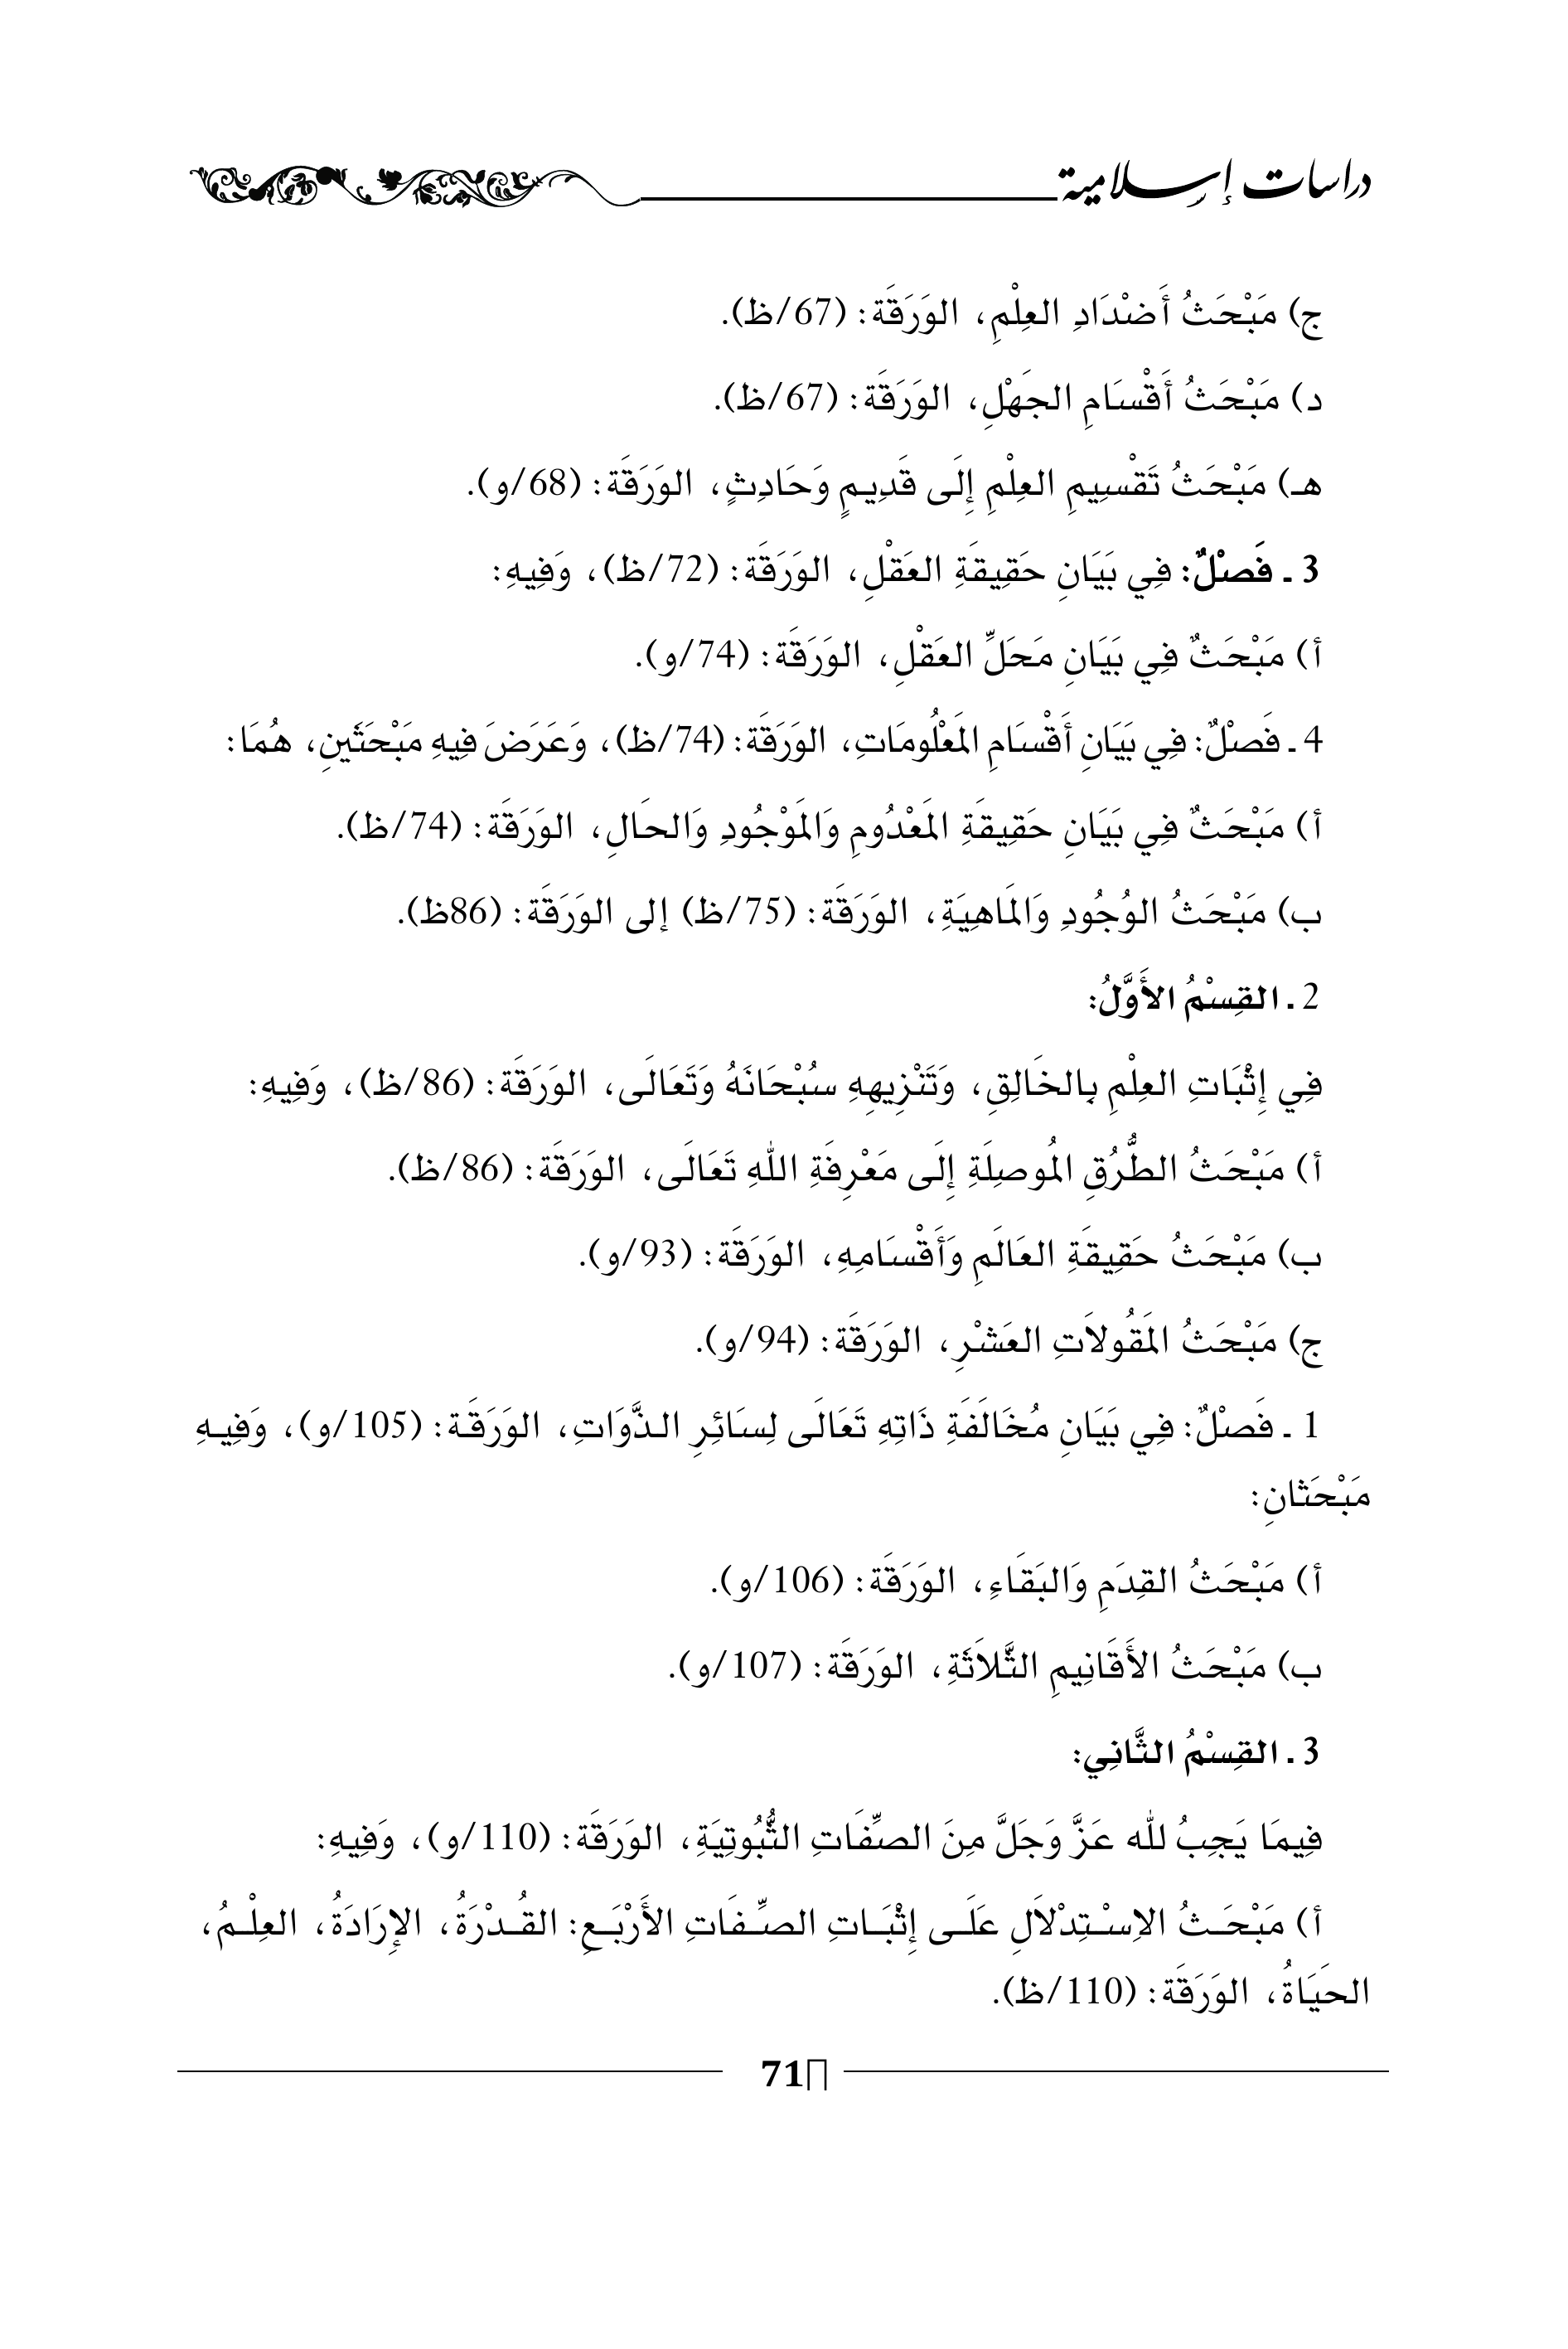 دراسات إسلامية
ج) مَبْحَثُ أَضْدَادِ العِلْمِ، الوَرَقَة: (67/ظ).
د) مَبْحَثُ أَقْسَامِ الجَهْلِ، الوَرَقَة: (67/ظ).
هـ) مَبْحَثُ تَقْسِيمِ العِلْمِ إِلَى قَدِيمٍ وَحَادِثٍ، الوَرَقَة: (68/و).
3 ـ فَصْلٌ: فِي بَيَانِ حَقِيقَةِ العَقْلِ، الوَرَقَة: (72/ظ)، وَفِيهِ:
أ) مَبْحَثٌ فِي بَيَانِ مَحَلِّ العَقْلِ، الوَرَقَة: (74/و).
4 ـ فَصْلٌ: فِي بَيَانِ أَقْسَامِ المَعْلُومَاتِ، الوَرَقَة: (74/ظ)، وَعَرَضَ فِيهِ مَبْحَثَينِ، هُمَا:
أ) مَبْحَثٌ فِي بَيَانِ حَقِيقَةِ المَعْدُومِ وَالمَوْجُودِ وَالحَالِ، الوَرَقَة: (74/ظ).
ب) مَبْحَثُ الوُجُودِ وَالمَاهِيَةِ، الوَرَقَة: (75/ظ) إلى الوَرَقَة: (86ظ).
2 ـ القِسْمُ الأَوَّلُ:
فِي إِثْبَاتِ العِلْمِ بِالخَالِقِ، وَتَنْزِيهِهِ سُبْحَانَهُ وَتَعَالَى، الوَرَقَة: (86/ظ)، وَفِيهِ:
أ) مَبْحَثُ الطُّرُقِ المُوصِلَةِ إِلَى مَعْرِفَةِ اللهِ تَعَالَى، الوَرَقَة: (86/ظ).
ب) مَبْحَثُ حَقِيقَةِ العَالَمِ وَأَقْسَامِهِ، الوَرَقَة: (93/و).
ج) مَبْحَثُ المَقُولاَتِ العَشْرِ، الوَرَقَة: (94/و).
1 ـ فَصْلٌ: فِي بَيَانِ مُخَالَفَةِ ذَاتِهِ تَعَالَى لِسَائِرِ الـذَّوَاتِ، الوَرَقَـة: (105/و)، وَفِيـهِ
مَبْحَثانِ:
أ) مَبْحَثُ القِدَمِ وَالبَقَاءِ، الوَرَقَة: (106/و).
ب) مَبْحَثُ الأَقَانِيمِ الثَّلاَثَةِ، الوَرَقَة: (107/و).
3 ـ القِسْمُ الثَّانِي:
فِيمَا يَجِبُ لله عَزَّ وَجَلَّ مِنَ الصِّفَاتِ الثُّبُوتِيَةِ، الوَرَقَة: (110/و)، وَفِيهِ:
أ) مَبْحَـثُ الاِسْـتِدْلاَلِ عَلَـى إِثْبَـاتِ الصِّـفَاتِ الأَرْبَـعِ: القُـدْرَةُ، الإِرَادَةُ، العِلْـمُ،
الحَيَاةُ، الوَرَقَة: (110/ظ).
71